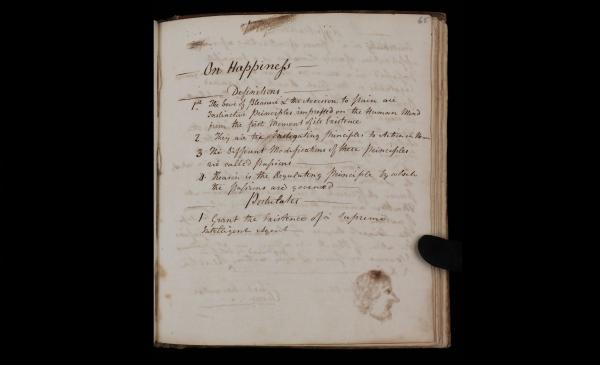 65
On Happiness
Definitions
1st The love of Pleasure & the Aversion to Pain are
Instinctive Principles impressed on the Human Mind
from the first Moment of its Existence
2 They are the Instigating Principles to Action in
3 The Different Modifications of these Principles
are called Passions
4 Reason is the Regulating Principle by which
the Passions are governed
Postulates
1 Grant the Existence of a Supreme
Intelligent Agent